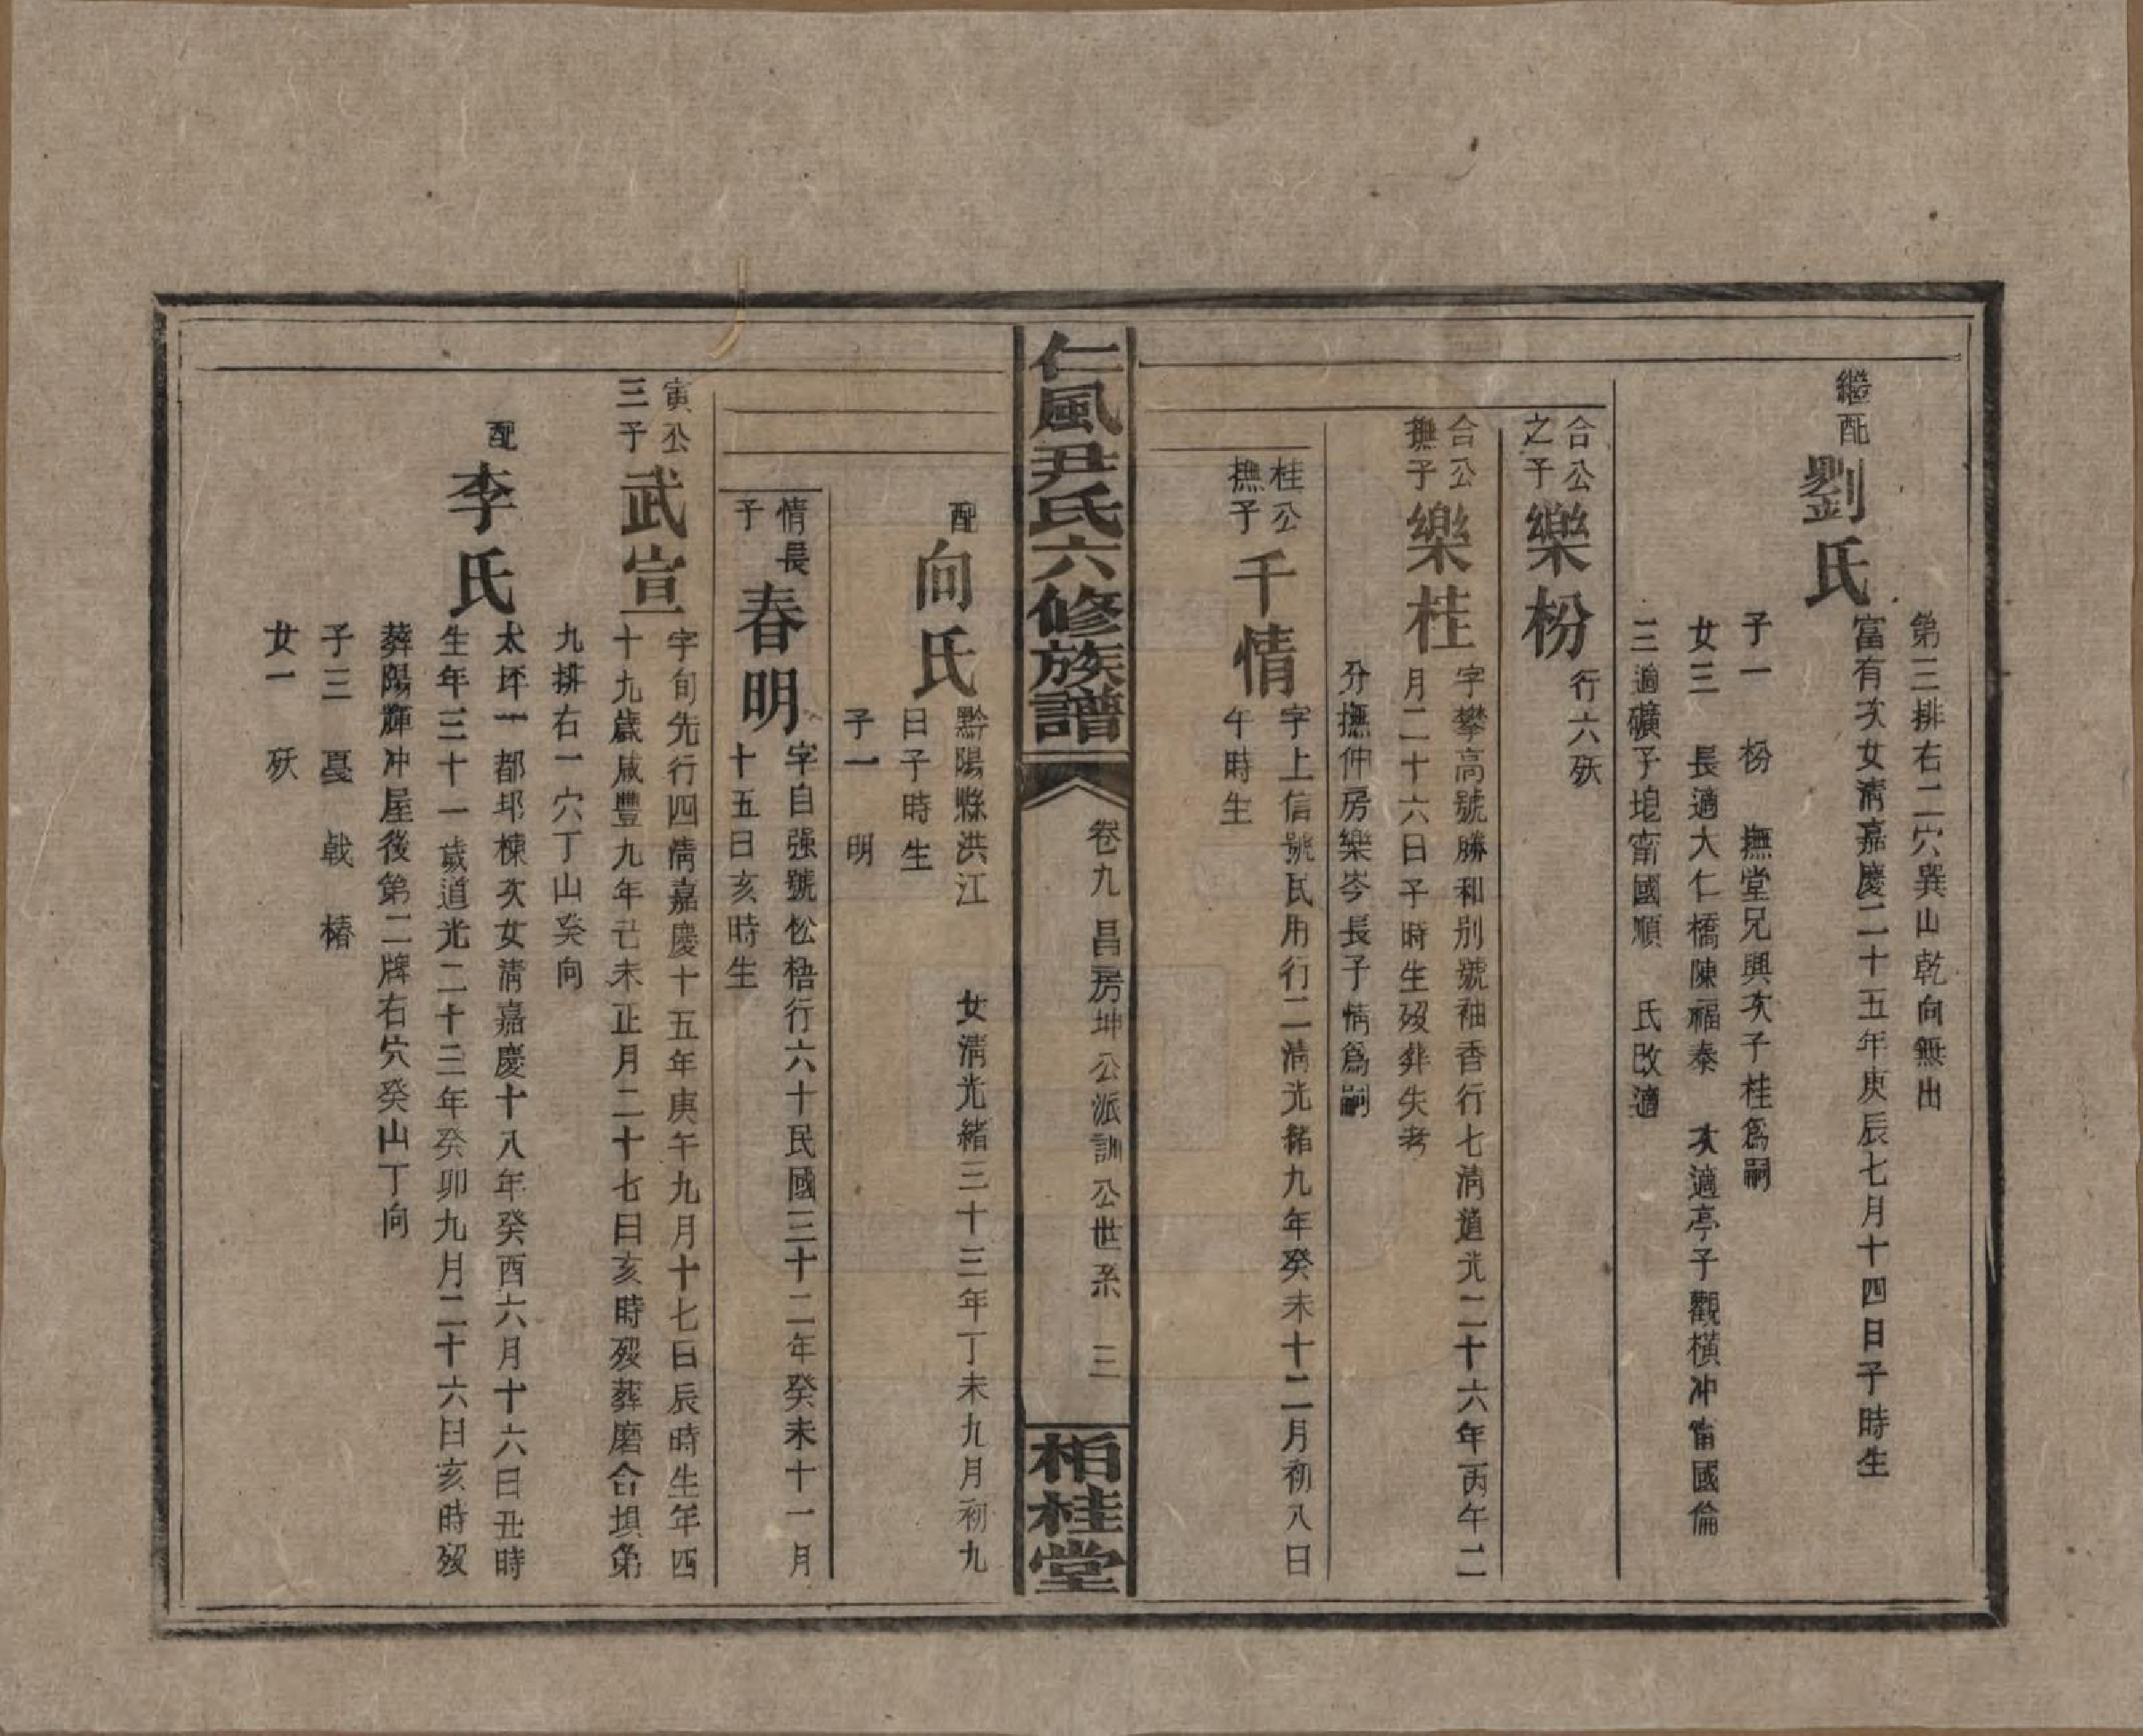 第三排右二穴巽山乾向無出
繼配劉氏
富有次女清嘉慶二十五年庚辰七月十四日子時生
子一 枌 撫堂兄興次子桂爲嗣
女三 長適大仁橋陳福泰 次適亭子觀橫冲甯國倫
三適礦子垉甯國順 氏改適
合公之子樂枌 行六殀
合公撫子樂桂
字攀高號勝和別號袖香行七清道光二十六年丙午二
月二十六日子時生歿葬失考
分撫仲房樂岑長子情爲嗣
桂公撫子千情
字上信號民用行二清光緒九年癸未十二月初八日
午時生
仁風尹氏六修族譜
卷九 昌房坤公派訓公世系 三
柏桂堂
配向氏
黔陽縣洪江 女清光緒三十三年丁未九月初九
日子時生
子一 明
情長子春明
字自强號松梧行六十民國三十二年癸未十一月
十五日亥時生
寅公三子武宣
字旬先行四清嘉慶十五年庚午九月十七日辰時生年四
十九歲咸豐九年己未正月二十七日亥時歿葬磨合垻第
九排右一穴丁山癸向
配李氏
太坪一都邛棟次女清嘉慶十八年癸酉六月十六日丑時
生年三十一歲道光二十三年癸卯九月二十六日亥時歿
葬陽輝冲屋後第二牌右穴癸山丁向
子三 戛 戟 椿
女一 殀